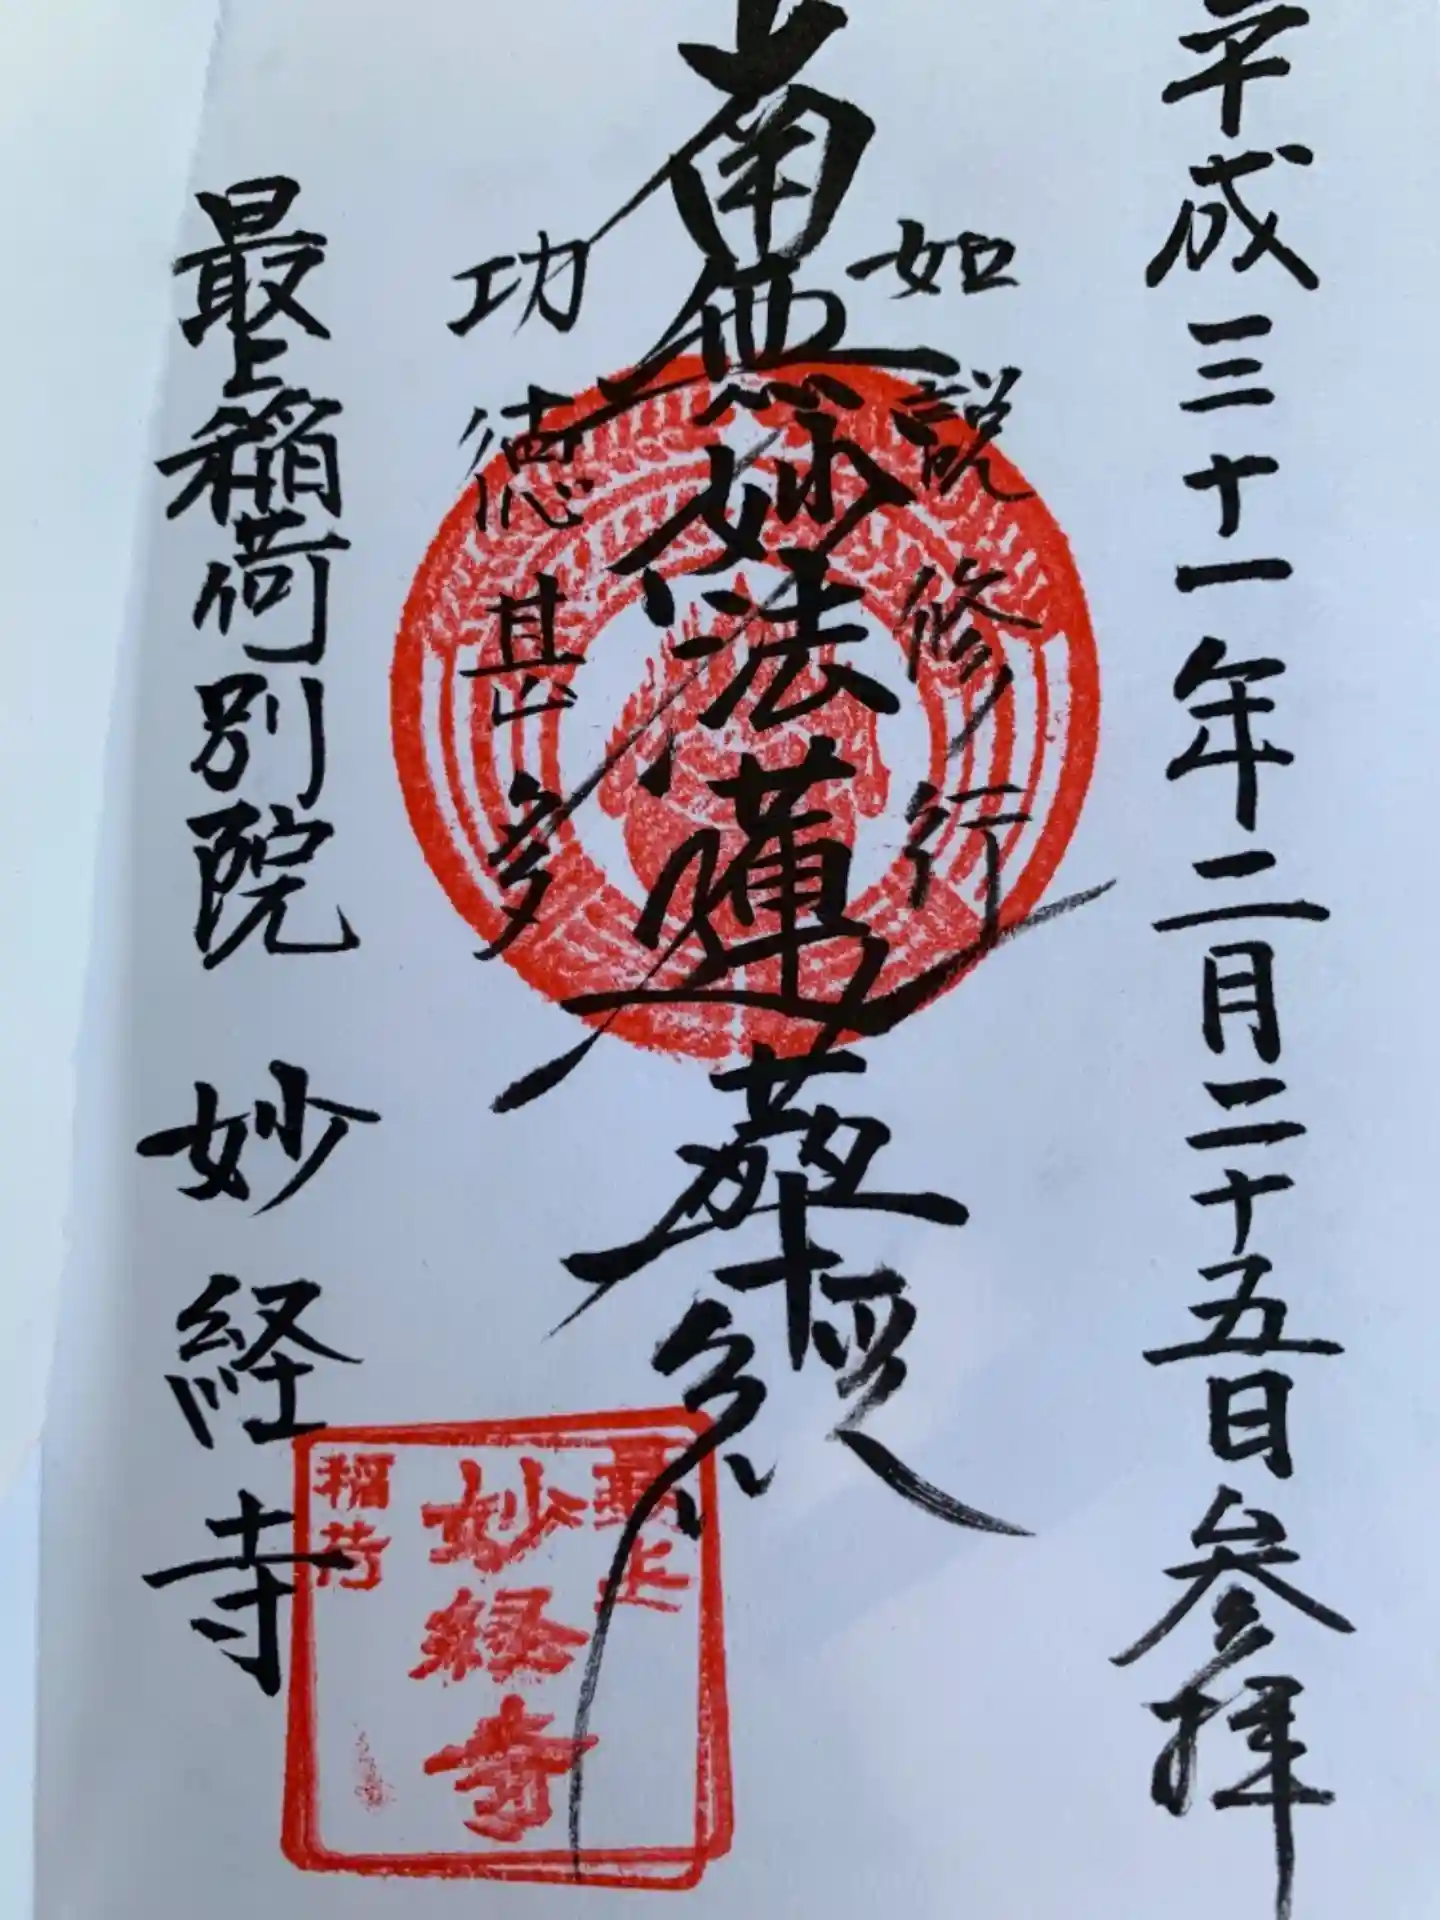 平成三十一年二月二十五日参拝
如説修行
南無妙法蓮華経
功徳甚多
最上稲荷別院 妙経寺
最上
妙経寺
稲荷